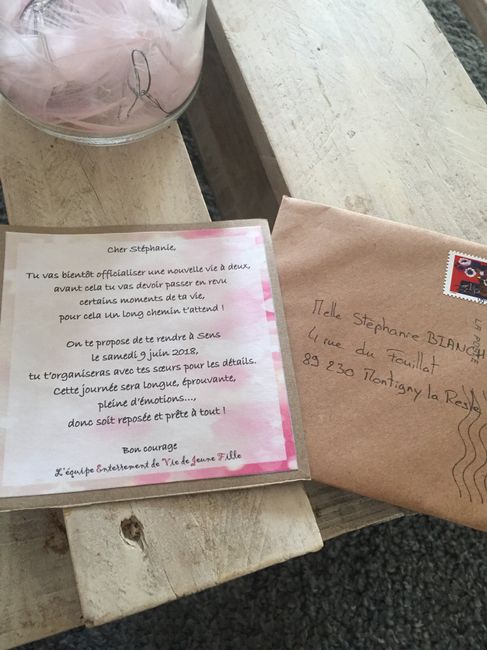 Cher Stéphanie,
Tu vas bientôt officialiser une nouvelle vie à deux,
avant cela tu vas devoir passer en revu
certains moments de ta vie,
pour cela un long chemin t'attend !
On te propose de te rendre à Sens
le samedi 9 juin 2018,
tu t'organiseras avec tes sœurs pour les détails.
Cette journée sera longue, éprouvante,
pleine d'émotions...,
donc soit reposée et prête à tout !
Bon courage
L'équipe Enterrement de Vie de Jeune Fille
Melle Stéphanie BIANCH
4 rue du Fouillat
89 230 Montigny la Resle
LA POSTE